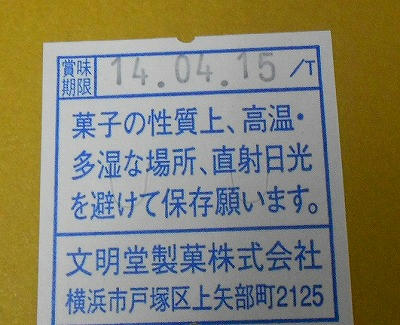 賞味期限 14.04.15 /T
菓子の性質上、高温・
多湿な場所、直射日光
を避けて保存願います。
文明堂製菓株式会社
横浜市戸塚区上矢部町2125